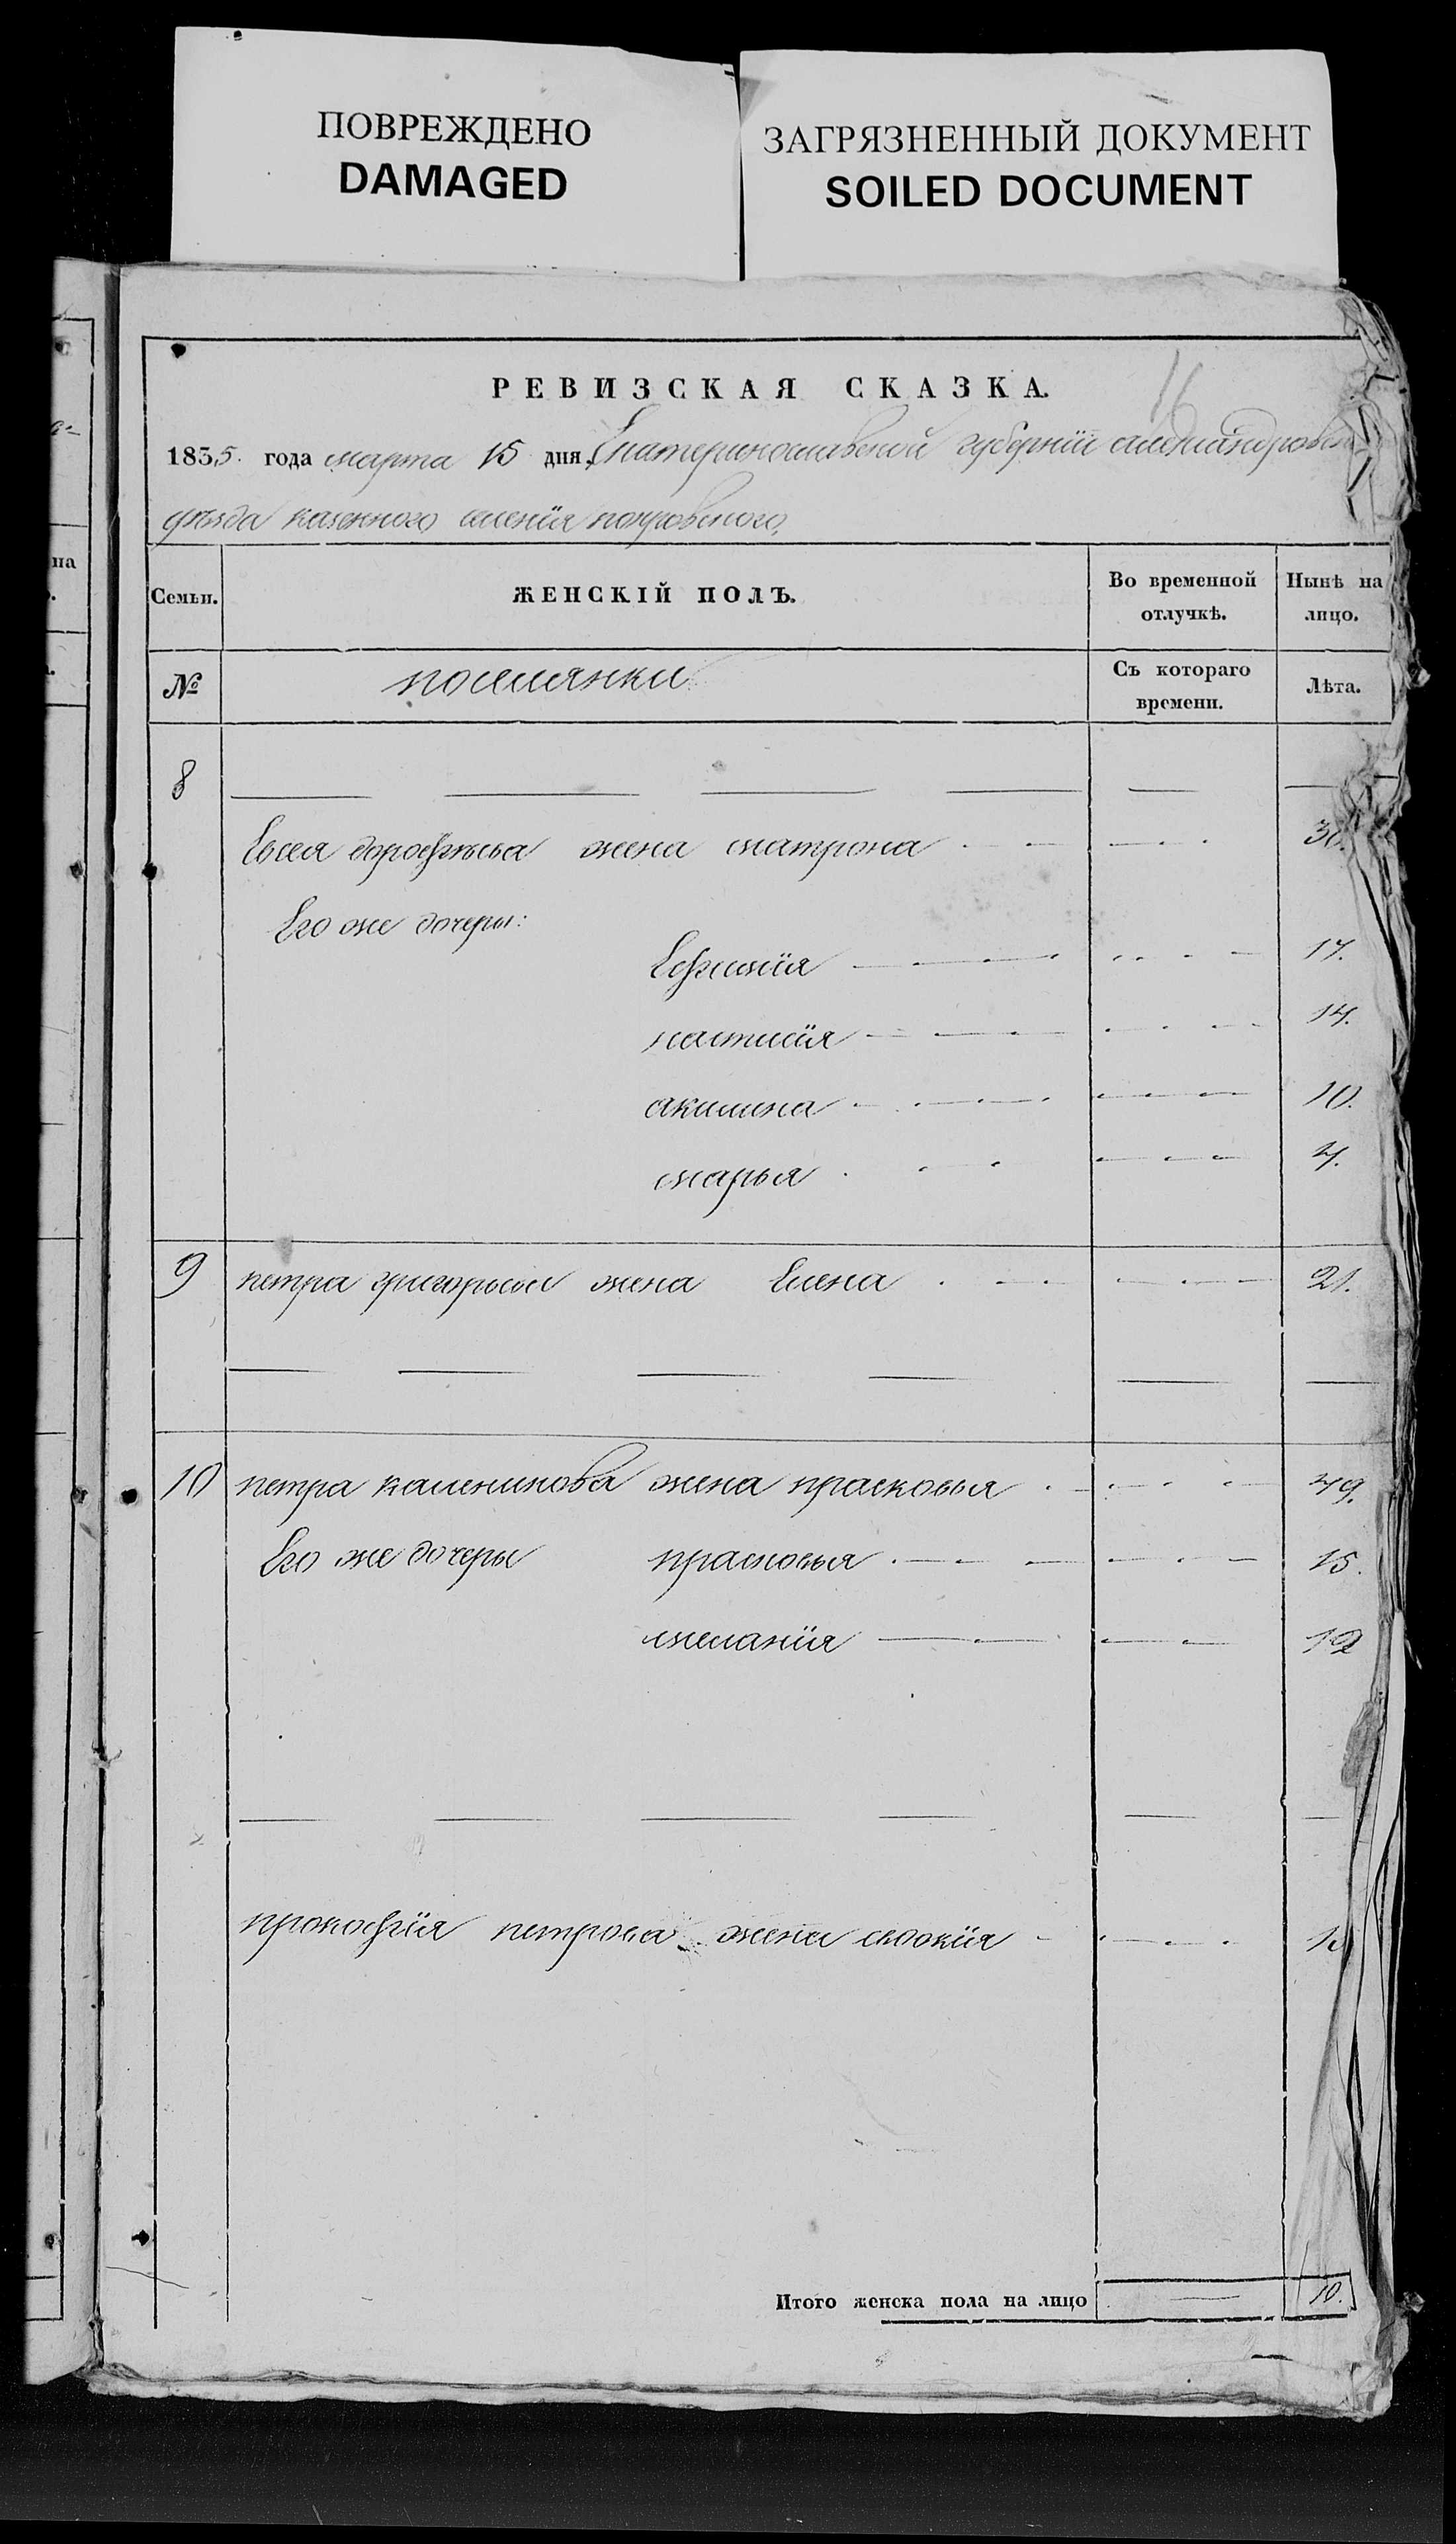 ПОВРЕЖДЕНО
DAMAGED
ЗАГРЯЗНЕННЫЙ ДОКУМЕНТ
SOILED DOCUMENT
16
РЕВИЗСКАЯ СКАЗКА.
1835. года марта 15 дня. Екатеринославской губернїи александровск
уѣзда казенного селенїя покровского,
Семьи. ЖЕНСКІЙ ПОЛЪ. Во временной отлучкѣ. Нынѣ на лицо.
№ поселянки Съ котораго времени. Лѣта.
8
Евсея дорофѣева жена матрона 30.
Его же дочеры:
Ефимїя 17.
настасїя 14.
акилина 10.
марья 4.
9 петра григорьева жена Елена 21.
10 петра каленикова жена прасковья 49.
Его же дочеры прасковья 15.
меланїя 12
прокофїя петрова жена
Итого женска пола на лицо 10.